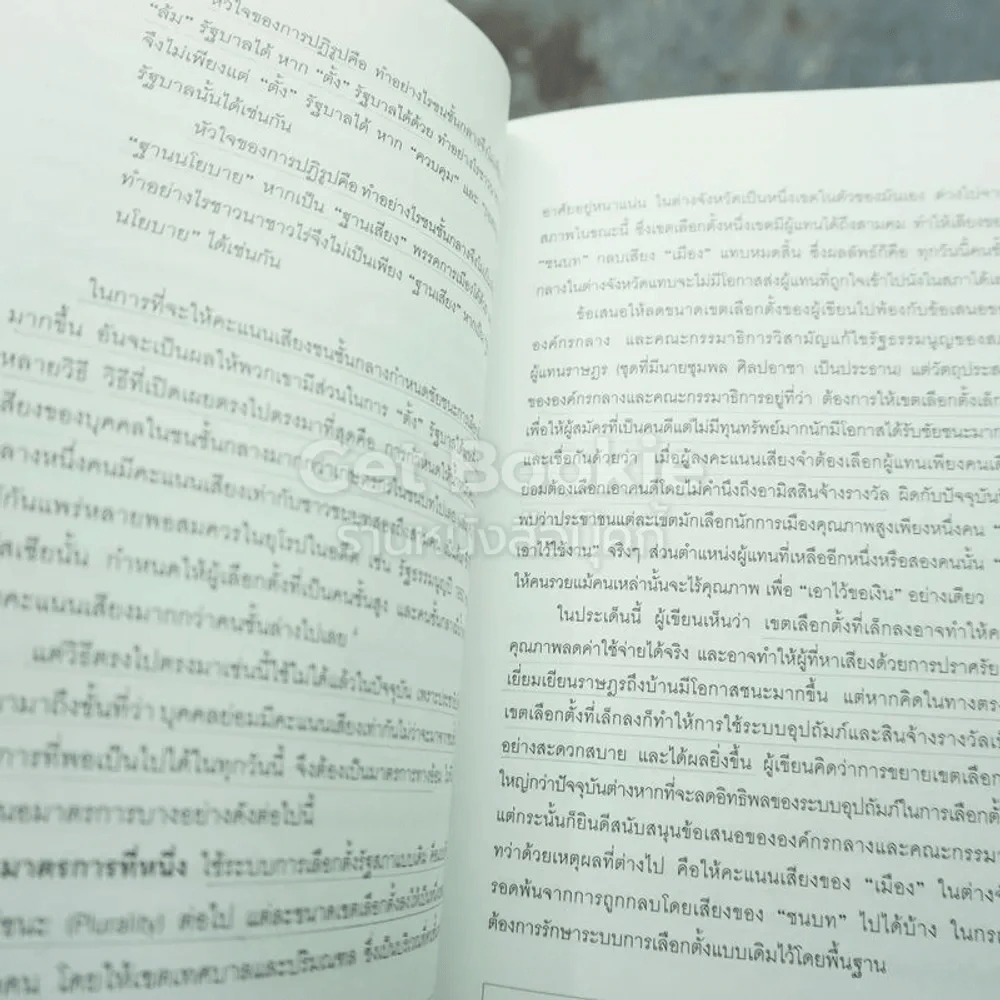 หัวใจของการปฏิรูปคือ ทำอย่างไรชนชั้นกลางจึง
"ล้ม" รัฐบาลได้ หาก "ตั้ง" รัฐบาลได้ด้วย ทำอย่างไร
จึงไม่เพียงแต่ "ตั้ง" รัฐบาลได้ หาก "ควบคุม" และ
รัฐบาลนั้นได้เช่นกัน
หัวใจของการปฏิรูปคือ ทำอย่างไรชนชั้นกลางจึง
"ฐานนโยบาย" หากเป็น "ฐานเสียง" พรรคการเมืองได้ด้วย
ทำอย่างไรชาวนาชาวไร่จึงไม่เป็นเพียง "ฐานเสียง" หากเป็น
นโยบาย" ได้เช่นกัน
ในการที่จะให้คะแนนเสียงชนชั้นกลางกำหนดชัยชนะ
มากขึ้น อันจะเป็นผลให้พวกเขามีส่วนในการ "ตั้ง" รัฐบาล
หลายวิธี วิธีที่เปิดเผยตรงไปตรงมาที่สุดคือ การกำหนดให้
เสียงของบุคคลในชนชั้นกลางมากกว่า
ลางหนึ่งคนมีคะแนนเสียงเท่ากับชาวชนบทสองถึงสาม
กันแพร่หลายพอสมควรในยุโรปในอดีต เช่น รัฐธรรมนูญปี
สเซียนั้น กำหนดให้ผู้เลือกตั้งที่เป็นคนชั้นสูง และคนชั้นกลาง
คะแนนเสียงมากกว่าคนชั้นล่างไปเลย
แต่วิธีตรงไปตรงมาเช่นนี้ใช้ไม่ได้แล้วในปัจจุบัน เพราะ
มาถึงขั้นที่ว่า บุคคลย่อมมีคะแนนเสียงเท่ากันไม่ว่าจะ
การที่พอเป็นไปได้ในทุกวันนี้ จึงต้องเป็นมาตรการทางอ้อม
นอมาตรการบางอย่างดังต่อไปนี้
มาตรการที่หนึ่ง ใช้ระบบการเลือกตั้งรัฐสภาแบบเดิม
ชนะ (Plurality) ต่อไป แต่ละขนาดเขตเลือกตั้งลงให้
คน โดยให้เขตเทศบาลและปริมณฑล ซึ่งเป็น
อาศัยอยู่หนาแน่น ในต่างจังหวัดเป็นหนึ่งเขตในตัวของมันเอง ต่างไปจาก
สภาพในขณะนี้ ซึ่งเขตเลือกตั้งหนึ่งเขตมีผู้แทนได้ถึงสามคน ทำให้เสียงของ
"ชนบท" กลบเสียง "เมือง" แทบหมดสิ้น ซึ่งผลลัพธ์ก็คือ ทุกวันนี้คนชั้น
กลางในต่างจังหวัดแทบจะไม่มีโอกาสส่งผู้แทนที่ถูกใจเข้าไปนั่งในสภาได้เลย
ข้อเสนอให้ลดขนาดเขตเลือกตั้งของผู้เขียนไปพ้องกับข้อเสนอของ
องค์กรกลาง และคณะกรรมาธิการวิสามัญแก้ไขรัฐธรรมนูญของสภา
ผู้แทนราษฎร (ชุดที่มีนายชุมพล ศิลปอาชา เป็นประธาน) แต่วัตถุประสงค์
ขององค์กรกลางและคณะกรรมาธิการอยู่ที่ว่า ต้องการให้เขตเลือกตั้งเล็ก
เพื่อให้ผู้สมัครที่เป็นคนดีแต่ไม่มีทุนทรัพย์มากนักมีโอกาสได้รับชัยชนะมาก
และเชื่อกันด้วยว่า เมื่อผู้ลงคะแนนเสียงจำต้องเลือกผู้แทนเพียงคนเดียว
ย่อมต้องเลือกเอาคนดีโดยไม่คำนึงถึงอามิสสินจ้างรางวัล ผิดกับปัจจุบัน
พบว่าประชาชนแต่ละเขตมักเลือกนักการเมืองคุณภาพสูงเพียงหนึ่งคน "
เอาไว้ใช้งาน" จริงๆ ส่วนตำแหน่งผู้แทนที่เหลืออีกหนึ่งหรือสองคนนั้น "
ให้คนรวยแม้คนเหล่านั้นจะไร้คุณภาพ เพื่อ "เอาไว้ขอเงิน" อย่างเดียว
ในประเด็นนี้ ผู้เขียนเห็นว่า เขตเลือกตั้งที่เล็กลงอาจทำให้
คุณภาพลดค่าใช้จ่ายได้จริง และอาจทำให้ผู้ที่หาเสียงด้วยการปราศรัย
เยี่ยมเยียนราษฎรถึงบ้านมีโอกาสชนะมากขึ้น แต่หากคิดในทางตรง
เขตเลือกตั้งที่เล็กลงก็ทำให้การใช้ระบบอุปถัมภ์และสินจ้างรางวัล
อย่างสะดวกสบาย และได้ผลยิ่งขึ้น ผู้เขียนคิดว่าการขยายเขตเลือก
ใหญ่กว่าปัจจุบันต่างหากที่จะลดอิทธิพลของระบบอุปถัมภ์ในการเลือกตั้ง
แต่กระนั้นก็ยินดีสนับสนุนข้อเสนอขององค์กรกลางและคณะกรรมา
ทว่าด้วยเหตุผลที่ต่างไป คือให้คะแนนเสียงของ "เมือง" ในต่าง
รอดพ้นจากการถูกกลบโดยเสียงของ "ชนบท" ไปได้บ้าง ในกร
ต้องการรักษาระบบการเลือกตั้งแบบเดิมไว้โดยพื้นฐาน
Get Bookie
ร้านหนังสือบุ๊คกี้